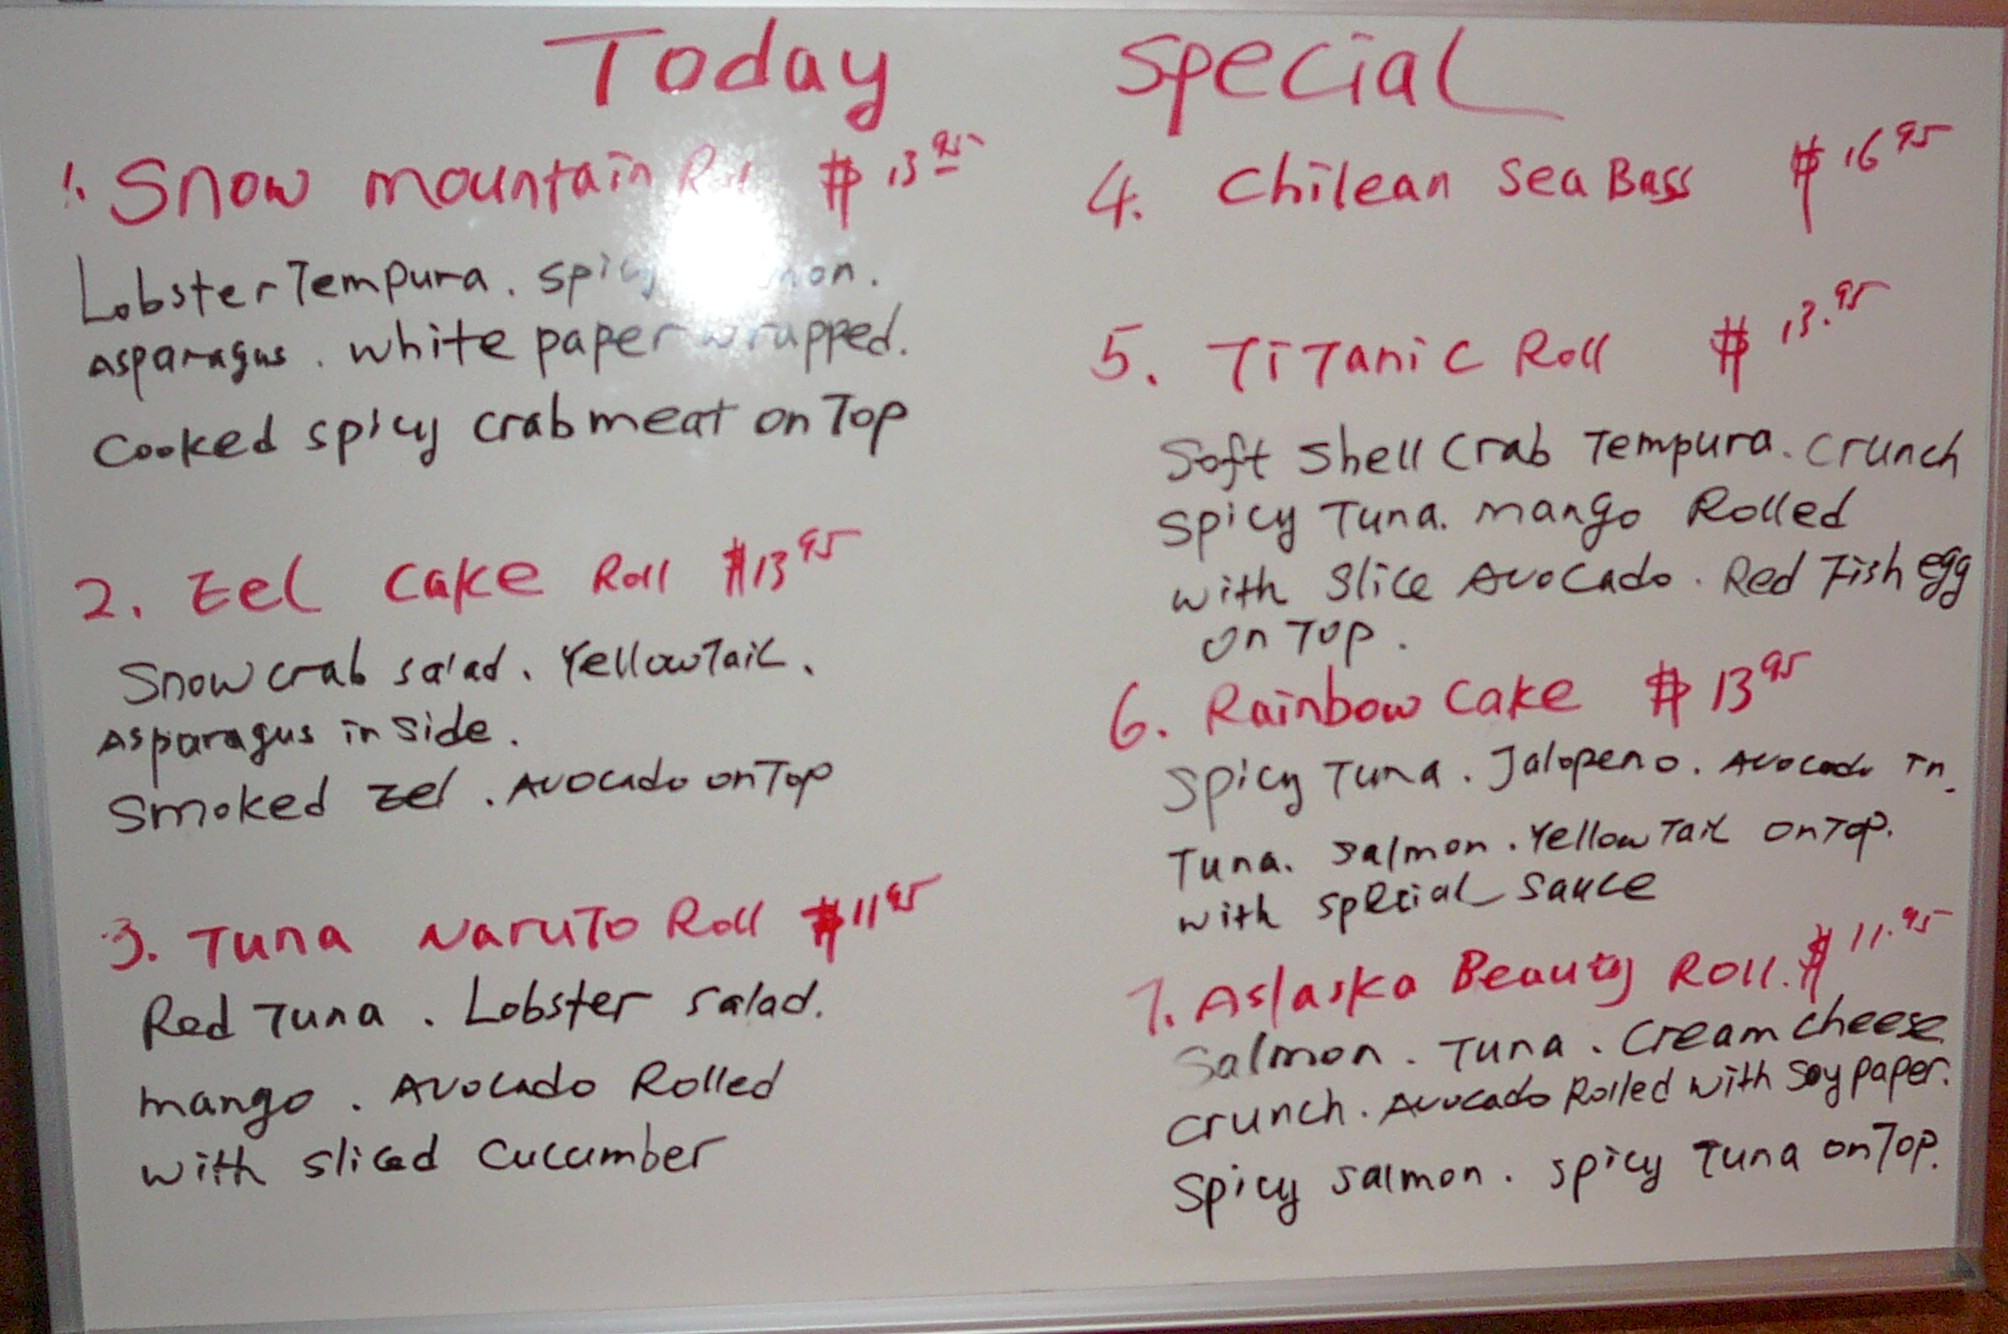 Today Special
1. Snow mountain Roll $13.95
Lobster Tempura. Spicy
Asparagus. White paper wrapped.
Cooked spicy crab meat on Top
2. Eel Cake Roll $13.95
Snow crab salad. Yellow Tail.
Asparagus in side.
Smoked Eel. Avocado on Top
3. Tuna Naruto Roll $11.95
Red Tuna. Lobster Salad.
mango. Avocado Rolled
with sliced Cucumber
4. Chilean Sea Bass $16.95
5. Titanic Roll $13.95
Soft Shell Crab Tempura. Crunch
Spicy Tuna. mango Rolled
with Slice Avocado. Red Fish egg
on Top.
6. Rainbow Cake $13.95
Spicy Tuna. Jalopeno. Avocado In.
Tuna. Salmon. Yellow Tail on Top.
with special sauce
7. Aslaska Beauty Roll. $11.95
Salmon. Tuna. Cream cheese
crunch. Avocado Rolled with Soy paper.
Spicy Salmon. Spicy Tuna on Top.